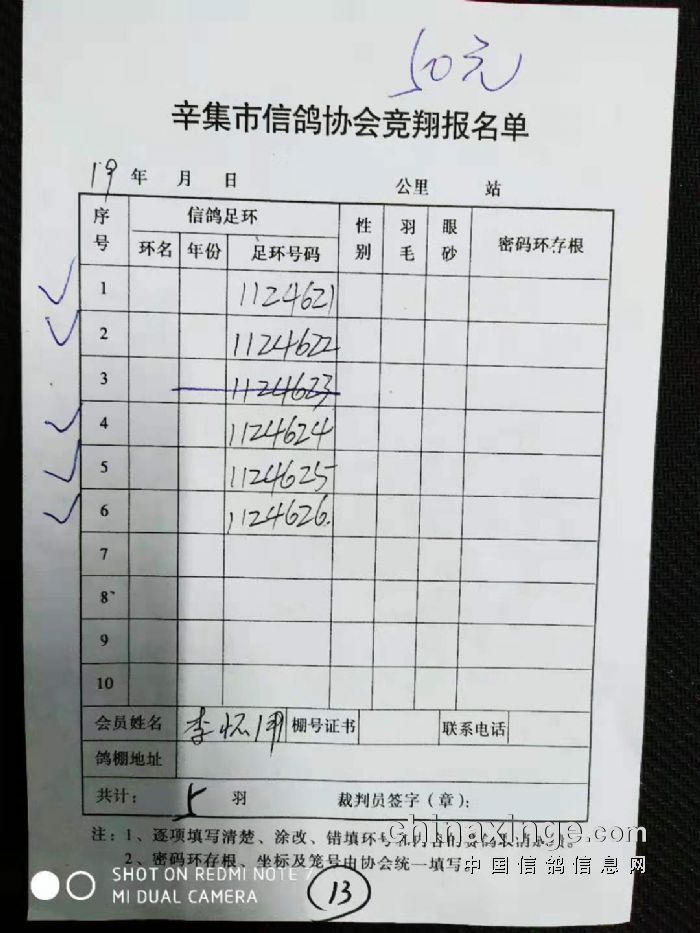 50元
辛集市信鸽协会竞翔报名单
19年 月 日 公里 站
序号 信鸽足环 性别 羽毛 眼砂 密码环存根
环名 年份 足环号码
1 1124621
2 1124622
3 1124623
4 1124624
5 1124625
6 1124626.
7
8
9
10
会员姓名 李怀 棚号证书 联系电话
鸽棚地址
共计: 5 羽 裁判员签字(章):
注:1、逐项填写清楚、涂改、错填环号
2、密码环存根、坐标及笼号由协会统一填写。
chinaxinge.com
中国信鸽信息网
SHOT ON REDMI NOTE 7
MI DUAL CAMERA
13